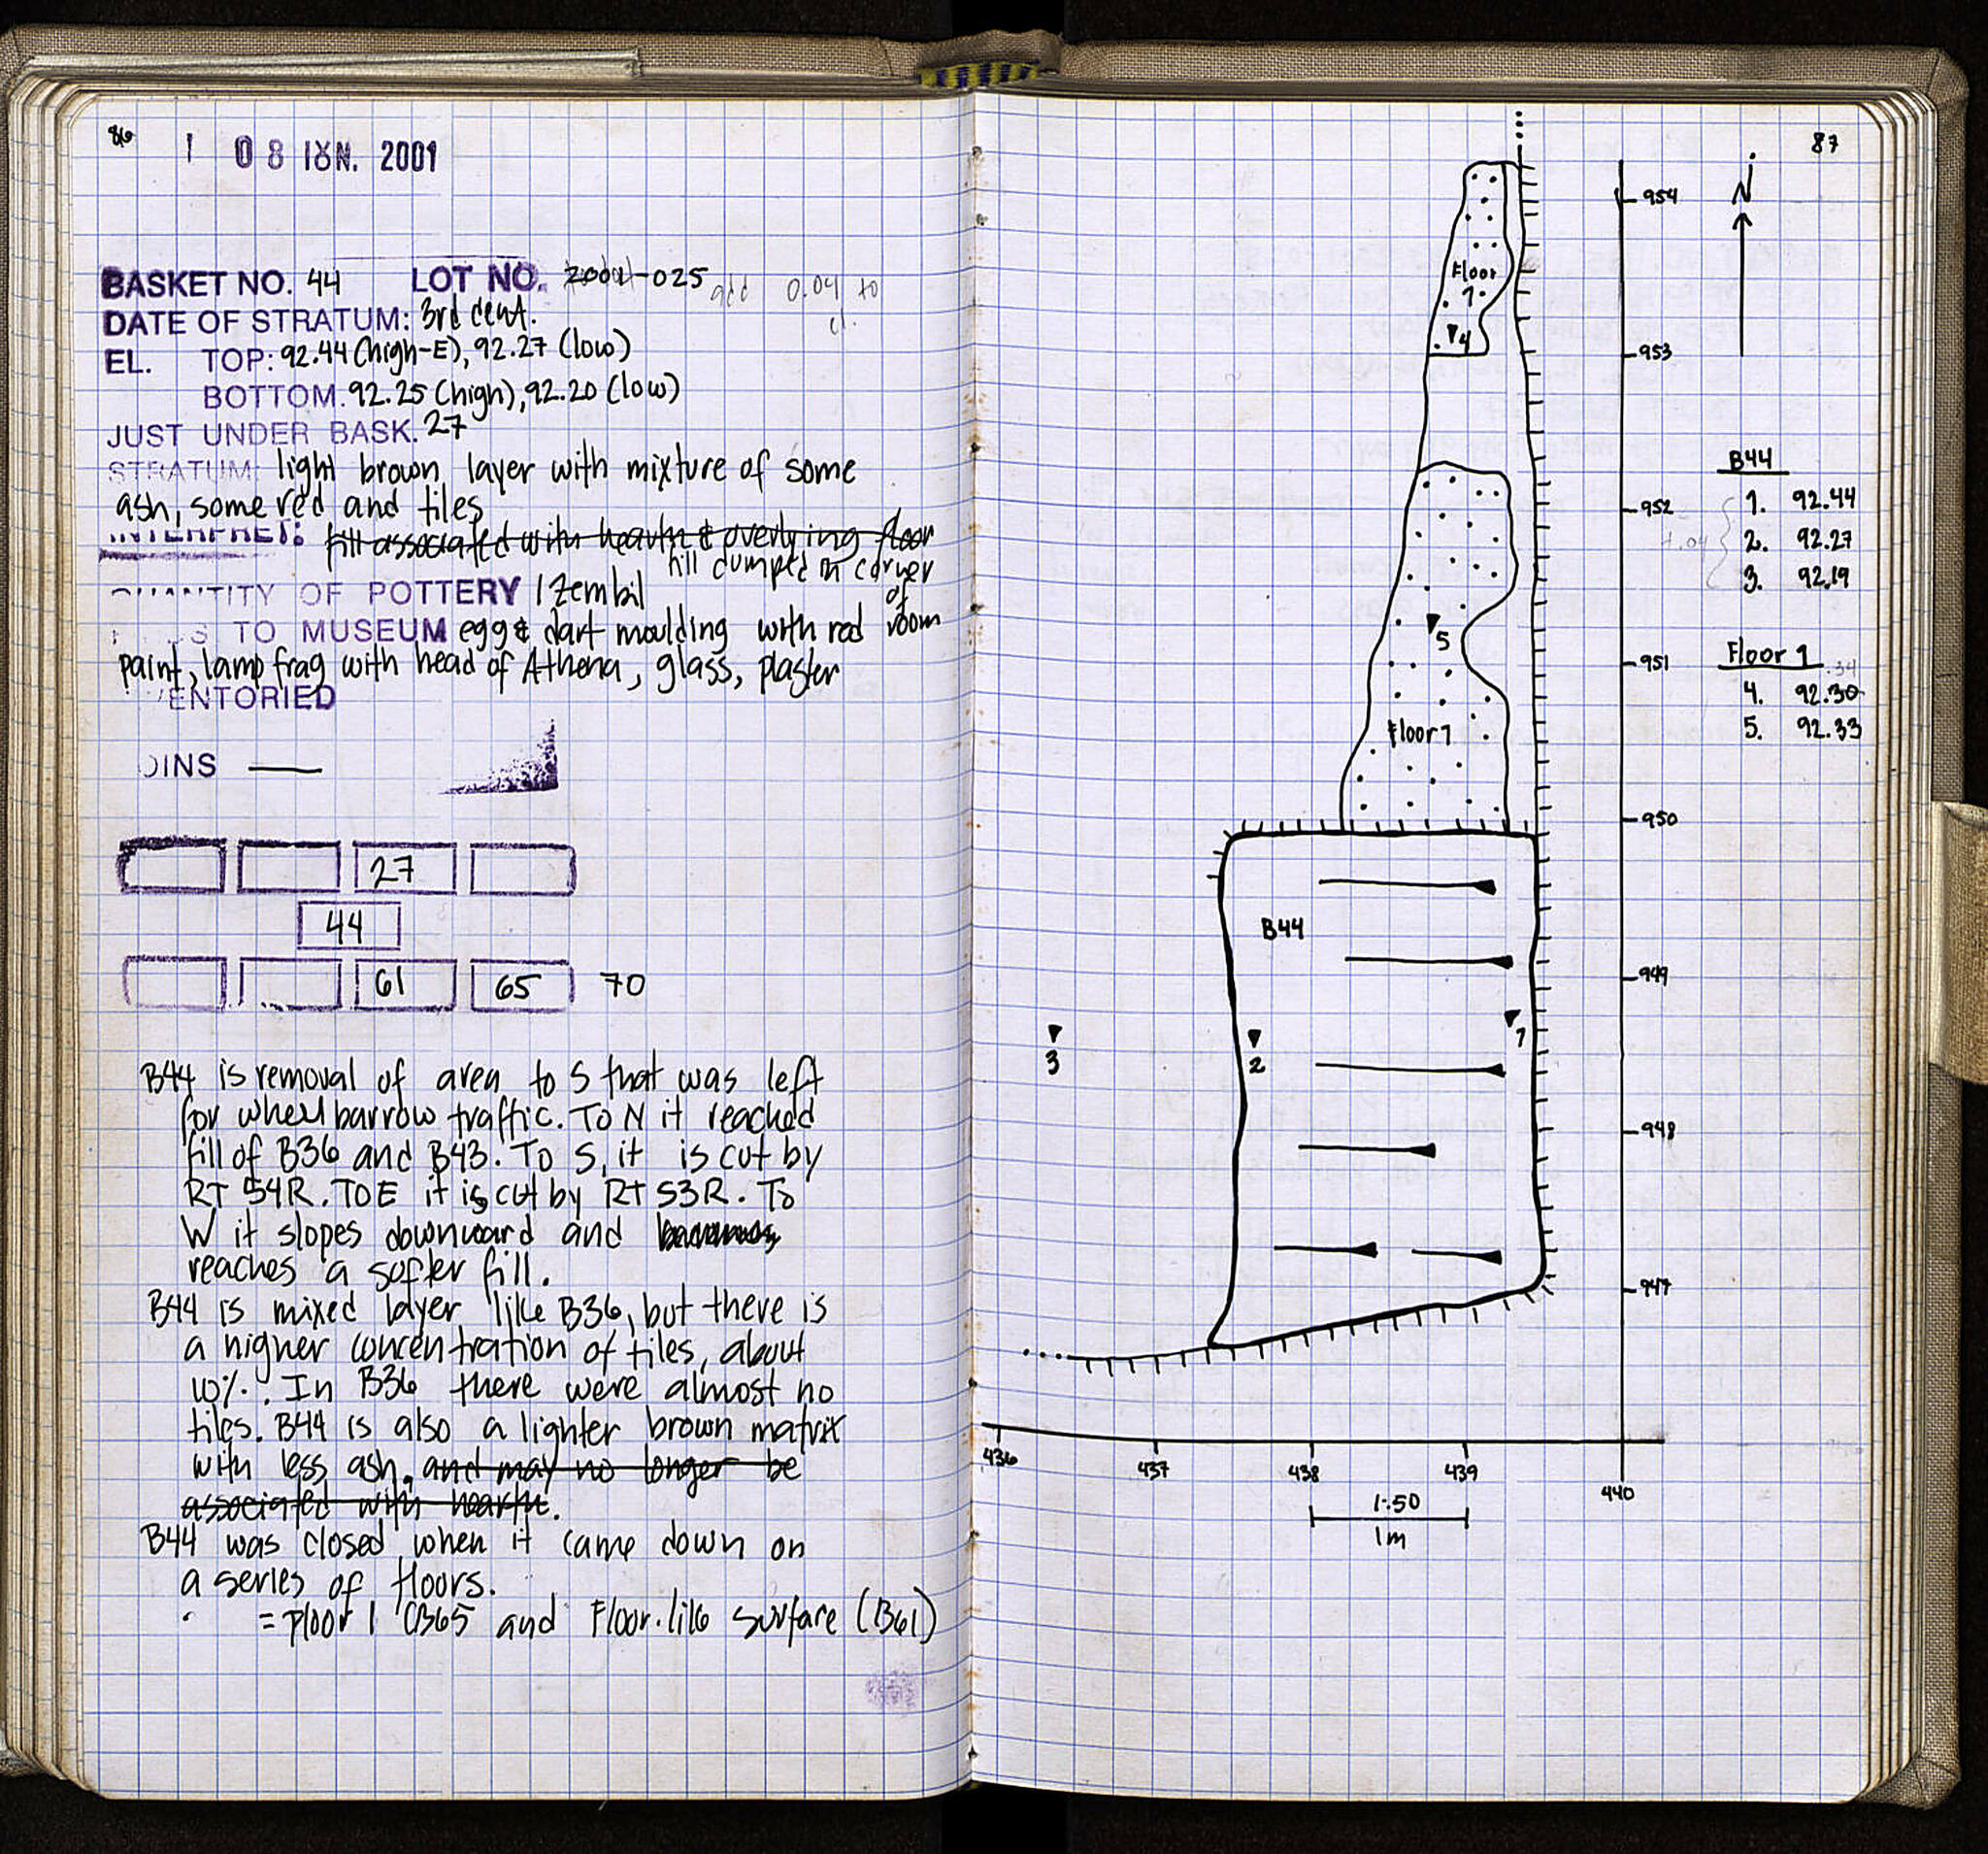 86
1 08 ΙΟΥΝ. 2001
BASKET NO. 44 LOT NO. 2001-025 add 0.04 to
el.
DATE OF STRATUM: 3rd cent.
EL. TOP: 92.44 (high-E), 92.27 (low)
BOTTOM. 92.25 (high), 92.20 (low)
JUST UNDER BASK. 27
STRATUM: light brown layer with mixture of some
ash, some red and tiles
INTERPRET: fill associated with hearth & overlying floor
fill dumped in corner
of
room
QUANTITY OF POTTERY 1 zembil
TO MUSEUM egg & dart moulding with red
paint, lamp frag with head of Athena, glass, plaster
VENTORIED
OINS —
27
44
61 65 70
B44 is removal of area to S that was left
for wheelbarrow traffic. To N it reached
fill of B36 and B43. To S, it is cut by
RT 54R. To E it is cut by RT 53R. To
W it slopes downward and
reaches a softer fill.
B44 is mixed layer like B36, but there is
a higher concentration of tiles, about
10%. In B36 there were almost no
tiles. B44 is also a lighter brown matrix
with less ash. and may no longer be
associated with hearth.
B44 was closed when it came down on
a series of floors.
= Floor 1 (B65 and Floor-like surface (B61)
87
N
954
Floor
1
4
953
B44
952
1. 92.44
+.04
2. 92.27
3. 92.19
5
951
Floor 1
.34
4. 92.30
5. 92.33
Floor 1
950
B44
949
1
3
2
948
947
436
437
438
439
440
1:50
1m